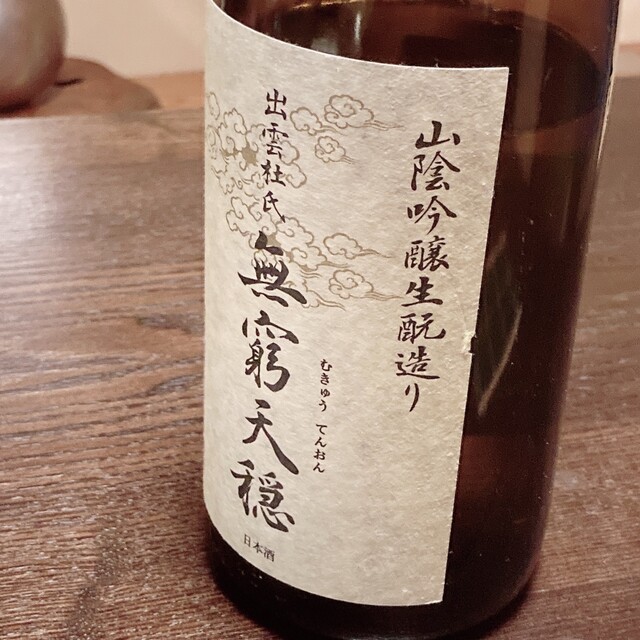 山陰吟醸生酛造り
出雲杜氏
無窮天穏
むきゅう てんおん
日本酒